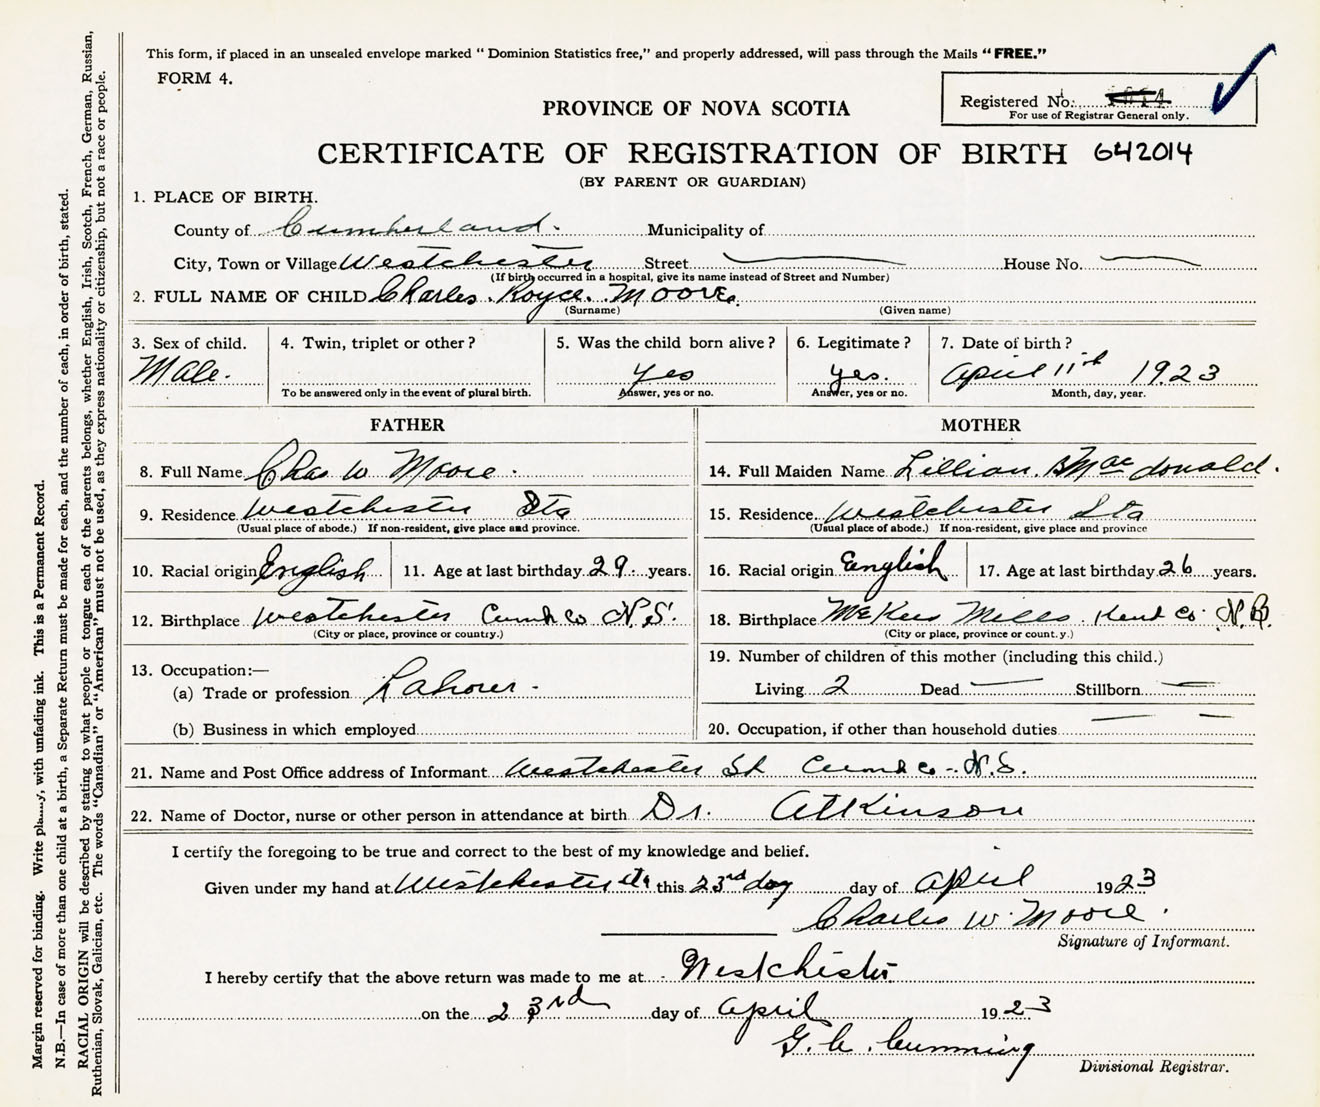 This form, if placed in an unsealed envelope marked “ Dominion Statistics free,” and properly addressed, will pass through the Mails “ FREE.”
FORM 4.
Registered No.
For use of Registrar General only.
PROVINCE OF NOVA SCOTIA
CERTIFICATE OF REGISTRATION OF BIRTH 642014
(BY PARENT OR GUARDIAN)
1. PLACE OF BIRTH.
County of Cumberland. Municipality of
City, Town or Village Westchester Street House No.
(If birth occurred in a hospital, give its name instead of Street and Number)
2. FULL NAME OF CHILD Charles. Royce. Moore.
(Surname) (Given name)
3. Sex of child. 4. Twin, triplet or other ? 5. Was the child born alive ? 6. Legitimate ? 7. Date of birth ?
Male. yes yes. April 11th 1923
To be answered only in the event of plural birth. Answer, yes or no. Answer, yes or no. Month, day, year.
FATHER MOTHER
8. Full Name Chas W Moore. 14. Full Maiden Name Lillian. B Mac donald.
9. Residence Westchester Sta 15. Residence Westchester Sta
(Usual place of abode.) If non-resident, give place and province. (Usual place of abode.) If non-resident, give place and province
10. Racial origin English 11. Age at last birthday 29 years. 16. Racial origin English 17. Age at last birthday 26 years.
12. Birthplace Westchester Cumb Co N.S. 18. Birthplace McKees Mills. Kent Co N.B.
(City or place, province or country.) (City or place, province or count.y.)
13. Occupation:— 19. Number of children of this mother (including this child.)
(a) Trade or profession Labourer. Living 2 Dead Stillborn
(b) Business in which employed 20. Occupation, if other than household duties
21. Name and Post Office address of Informant Westchester St Cumb Co - N.S.
22. Name of Doctor, nurse or other person in attendance at birth Dr. Atkinson
I certify the foregoing to be true and correct to the best of my knowledge and belief.
Given under my hand at Westchester Sta this 23rd day day of April 1923
Charles W. Moore.
Signature of Informant.
I hereby certify that the above return was made to me at Westchester
on the 23rd day of April 1923
G. C. Cumming
Divisional Registrar.
Margin reserved for binding. Write with unfading ink. This is a Permanent Record.
N.B.—In case of more than one child at a birth, a Separate Return must be made for each, and the number of each, in order of birth, stated.
RACIAL ORIGIN will be described by stating to what people or tongue each of the parents belongs, whether English, Irish, Scotch, French, German, Russian,
Ruthenian, Slovak, Galician, etc. The words “Canadian” or “American” must not be used, as they express nationality or citizenship, but not a race or people.